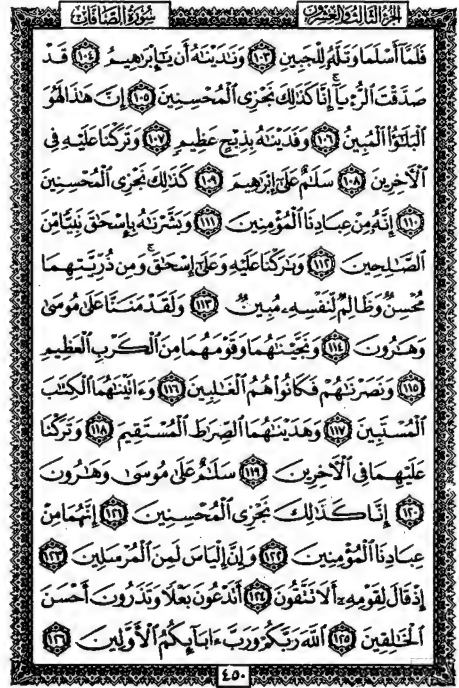 الجزء الثالث والعشرون سورة الصافات
فَلَمَّآ أَسْلَمَا وَتَلَّهُۥ لِلْجَبِينِ ١٠٣ وَنَٰدَيْنَٰهُ أَن يَٰٓإِبْرَٰهِيمُ ١٠٤ قَدْ
صَدَّقْتَ ٱلرُّءْيَآ ۚ إِنَّا كَذَٰلِكَ نَجْزِى ٱلْمُحْسِنِينَ ١٠٥ إِنَّ هَٰذَا لَهُوَ
ٱلْبَلَٰٓؤُا۟ ٱلْمُبِينُ ١٠٦ وَفَدَيْنَٰهُ بِذِبْحٍ عَظِيمٍ ١٠٧ وَتَرَكْنَا عَلَيْهِ فِى
ٱلْءَاخِرِينَ ١٠٨ سَلَٰمٌ عَلَىٰٓ إِبْرَٰهِيمَ ١٠٩ كَذَٰلِكَ نَجْزِى ٱلْمُحْسِنِينَ
١١٠ إِنَّهُۥ مِنْ عِبَادِنَا ٱلْمُؤْمِنِينَ ١١١ وَبَشَّرْنَٰهُ بِإِسْحَٰقَ نَبِيًّا مِّنَ
ٱلصَّٰلِحِينَ ١١٢ وَبَٰرَكْنَا عَلَيْهِ وَعَلَىٰٓ إِسْحَٰقَ ۚ وَمِن ذُرِّيَّتِهِمَا
مُحْسِنٌ وَظَالِمٌ لِّنَفْسِهِۦ مُبِينٌ ١١٣ وَلَقَدْ مَنَنَّا عَلَىٰ مُوسَىٰ
وَهَٰرُونَ ١١٤ وَنَجَّيْنَٰهُمَا وَقَوْمَهُمَا مِنَ ٱلْكَرْبِ ٱلْعَظِيمِ
١١٥ وَنَصَرْنَٰهُمْ فَكَانُوا۟ هُمُ ٱلْغَٰلِبِينَ ١١٦ وَءَاتَيْنَٰهُمَا ٱلْكِتَٰبَ
ٱلْمُسْتَبِينَ ١١٧ وَهَدَيْنَٰهُمَا ٱلصِّرَٰطَ ٱلْمُسْتَقِيمَ ١١٨ وَتَرَكْنَا
عَلَيْهِمَا فِى ٱلْءَاخِرِينَ ١١٩ سَلَٰمٌ عَلَىٰ مُوسَىٰ وَهَٰرُونَ
١٢٠ إِنَّا كَذَٰلِكَ نَجْزِى ٱلْمُحْسِنِينَ ١٢١ إِنَّهُمَا مِنْ
عِبَادِنَا ٱلْمُؤْمِنِينَ ١٢٢ وَإِنَّ إِلْيَاسَ لَمِنَ ٱلْمُرْسَلِينَ ١٢٣
إِذْ قَالَ لِقَوْمِهِۦٓ أَلَا تَتَّقُونَ ١٢٤ أَتَدْعُونَ بَعْلًا وَتَذَرُونَ أَحْسَنَ
ٱلْخَٰلِقِينَ ١٢٥ ٱللَّهَ رَبَّكُمْ وَرَبَّ ءَابَآئِكُمُ ٱلْأَوَّلِينَ ١٢٦
٤٥٠